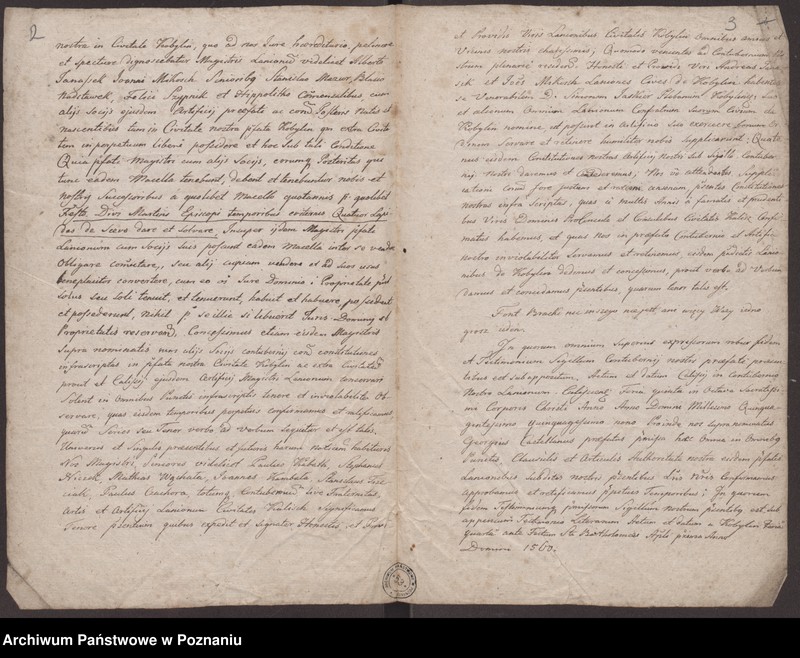 2
nostra in Civitate Kobylin, quo ad nos Jure hæreditario pertinere
et spectare dignoscebatur Magistris Lanionū videlicet Alberto
Janaszek Joanni Mekisch Senioribq Stanislao Mazur, Blasio
Felici Szypnik et Hippolitho Consenculibus cum
alijs Socijs ejusdem Artificij præfatæ ac eorū Posteris natis et
nascentibus tum in Civitate nostra pfata Kobylin qm extra Civita
tem in perpetuum libere possidere et hoc sub tali Conditione
Quia pfati Magistri cum alijs Socijs, eorumq Posteritas qui
tunc eadem Macella tenebunt, debent et tenebuntur nobis et
nostris Successoribus a quolibet Macello quotannis p. quolibet
Festo Divi Martini Episcopi temporibus æternis Quatuor Lapi-
des de Seevo dare et solvere, Insuper ijdem Magistri pfati
Lanionum cum Socijs suis possunt eadem Macella inter se vendere
Obligare comutare, seu alij cuipiam vendere et ad suos usus
beneplacitos convertere, cum eo oi Jure Dominio et Proprietate prout
solus seu soli tenuit, et tenuerunt, habuit et habuere possedit
et possederunt, Nihil p. se illic si libuerit Juris Dominij et
Proprietatis reservan. Concessimus etiam eisdem Magistris
Supra nominatis cum alijs Socijs contubernij eorū constitutiones
infrascriptas in pfata nostra Civitate Kobylin ac extra Civitatem
prout et Calissij ejusdem Artificij Magistri Lanionum conservari
Solent in Omnibus Punctis infrascriptis tenere et inviolabiliter Ob-
servare, quas eisdem temporibus perpetuis confirmamus et ratificamus
quarū Series seu Tenor verbo ad verbum Sequitur et est talis.
Universis et Singulis præsentibus et futuris harum notitiam habituris
Nos Magistri, Seniores videlicet Paulus Kubath, Stephanus
Hiczek, Mathias Wychala, Joannes Kumbala, Stanislaus
Paulus Cachora, totumq Contubernium sive Fraternitas
Artis et Artificij Lanionum Civitatis Kaliszh Significamus
Tenore præsentium quibus expedit et signater Honestis et Fa
3
et Providis Viris Lanionibus Civitatis Kobylin Omnibus amicis et
Vicinis nostris charissimis; Quomodo venientes ad Contubernium
strum plenarie residen. Honesti et Providi Viri Andreas Jana
sek et Joēs Mekisch Laniones Cives de Kobylin habentes
se Venerabilem D. Parochum Kobylinen.
et aliorum Omnium Lanionum Confratrum suorum civium de
Kobylin nomine, et possunt in Artificio Suo exercere
Usum servare et retinere humiliter nobis supplicarunt, Quate
nus eisdem Constitutiones nostras Artificij Nostri sub Sigillo Contuber-
nij Nostri daremus et concederemus; Nos vō attendentes Supplica
tionem eorū fore justam et rationi consonam, psentes Constitutiones
nostras infra Scriptas, quas a multis Annis a famatis et prudenti-
bus Viris Dominis Proconsule et Consulibus Civitatis Kalisz Confir
matas habemus, et quas nos in præfato Contubernio et Artificio
nostro inviolabiliter servamus et retinemus, eisdem prædictis Lanio
nibus de Kobylin dedimus et concessimus, prout verbo ad Verbum
damus et concedimus psentibus, quarum tenor talis est.
In quorum omnium Superius expressorum robur fidem
et Testimonium Sigillum Contubernij nostri præfati præsen
tibus est subappensum, Actum et datum Calissij in Contubernio
Nostro Lanionum Calissiens. Feria quinta in Octava Sacratissi
mi Corporis Christi Anno Domini Millesimo Quinqua
gentesimo quinquagesimo nono Proinde nos supra nominatus
Georgius Castellanus præfatus præfatæ hæc Omnia in Omnibus
Punctis, Clausulis et Articulis Authoritate nostra eisdem pfatis
Lanionibus Subditis nostris psentibus Lris nrīs Confirmamus
approbamus et ratificamus ppetuis Temporibus; In quorum
fidem Testimoniumq præmissorum Sigillum Nostrum psentibq est sub
appensum Actum et datum in Kobylin Feria
Quarta ante Festum Sti Bartholomæi Apli proxima Anno
Domini 1560.
Archiwum Państwowe w Poznaniu